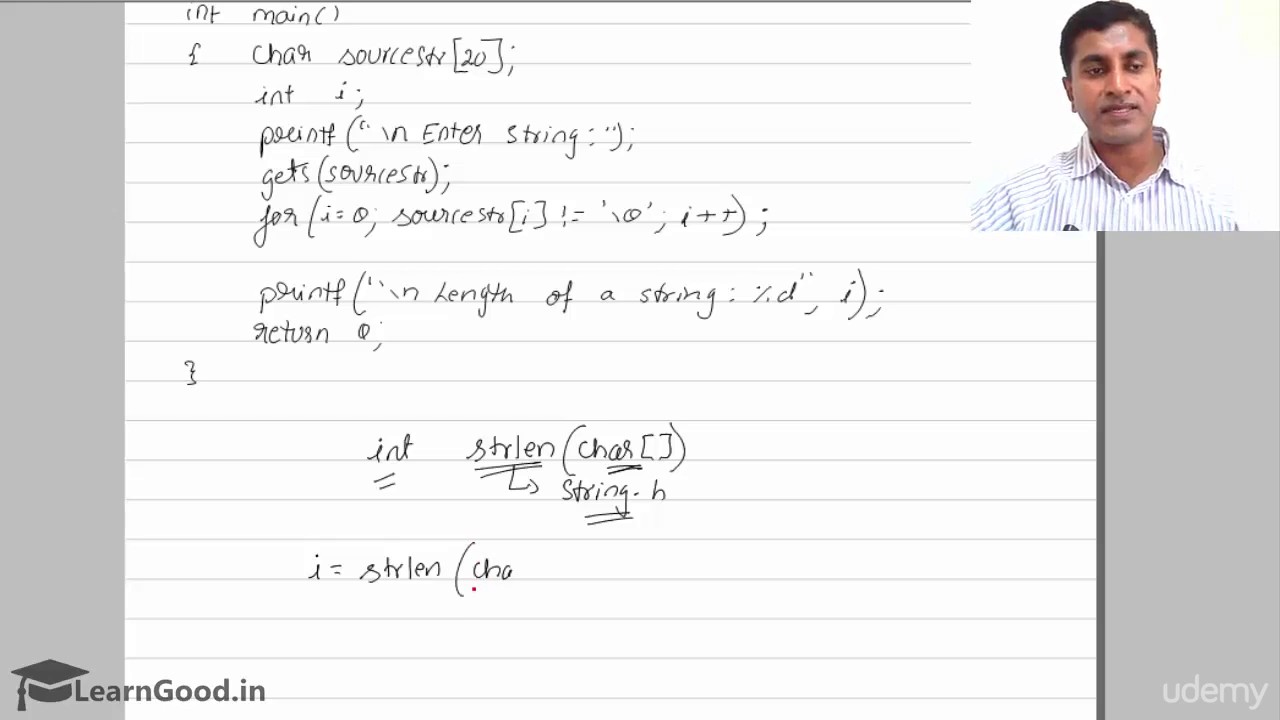 int main()
{ char sourcestr[20];
int i;
printf("\n Enter string:");
gets(sourcestr);
for(i=0; sourcestr[i] != '\0'; i++);
printf("\n Length of a string: %d", i);
return 0;
}
int strlen(char[])
↳ string.h
i = strlen(cha
LearnGood.in
udemy